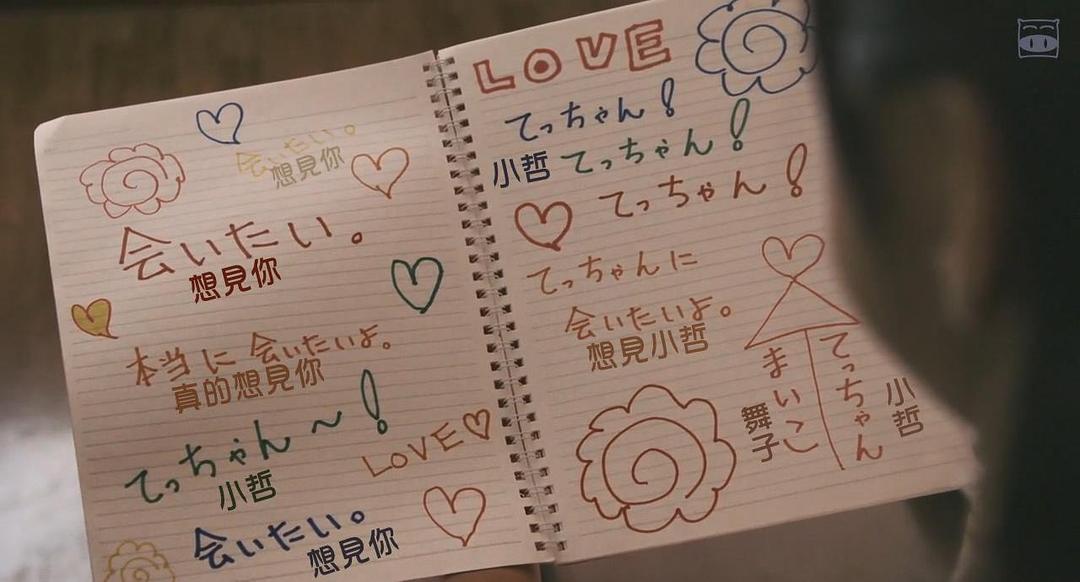 会いたい。
想見你
会いたい。
想見你
本当に会いたいよ。
真的想見你
てっちゃん~!
小哲
LOVE
会いたい。
想見你
LOVE
てっちゃん!
小哲
てっちゃん!
てっちゃん!
てっちゃんに
会いたいよ。
想見小哲
まいこ
舞子
てっちゃん
小哲